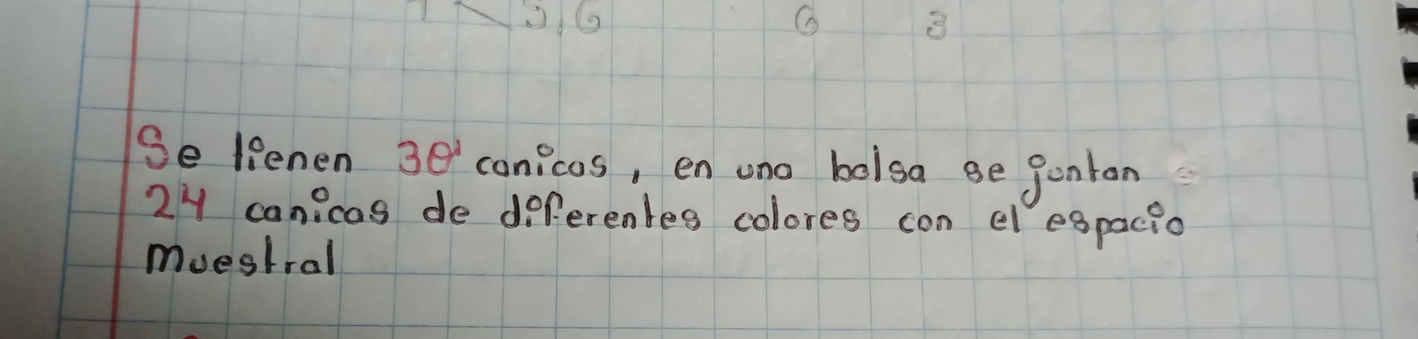 5,6 6 3
Se tienen 30 canicas, en una bolsa se juntan
24 canicas de diferentes colores con el espacio
muestral